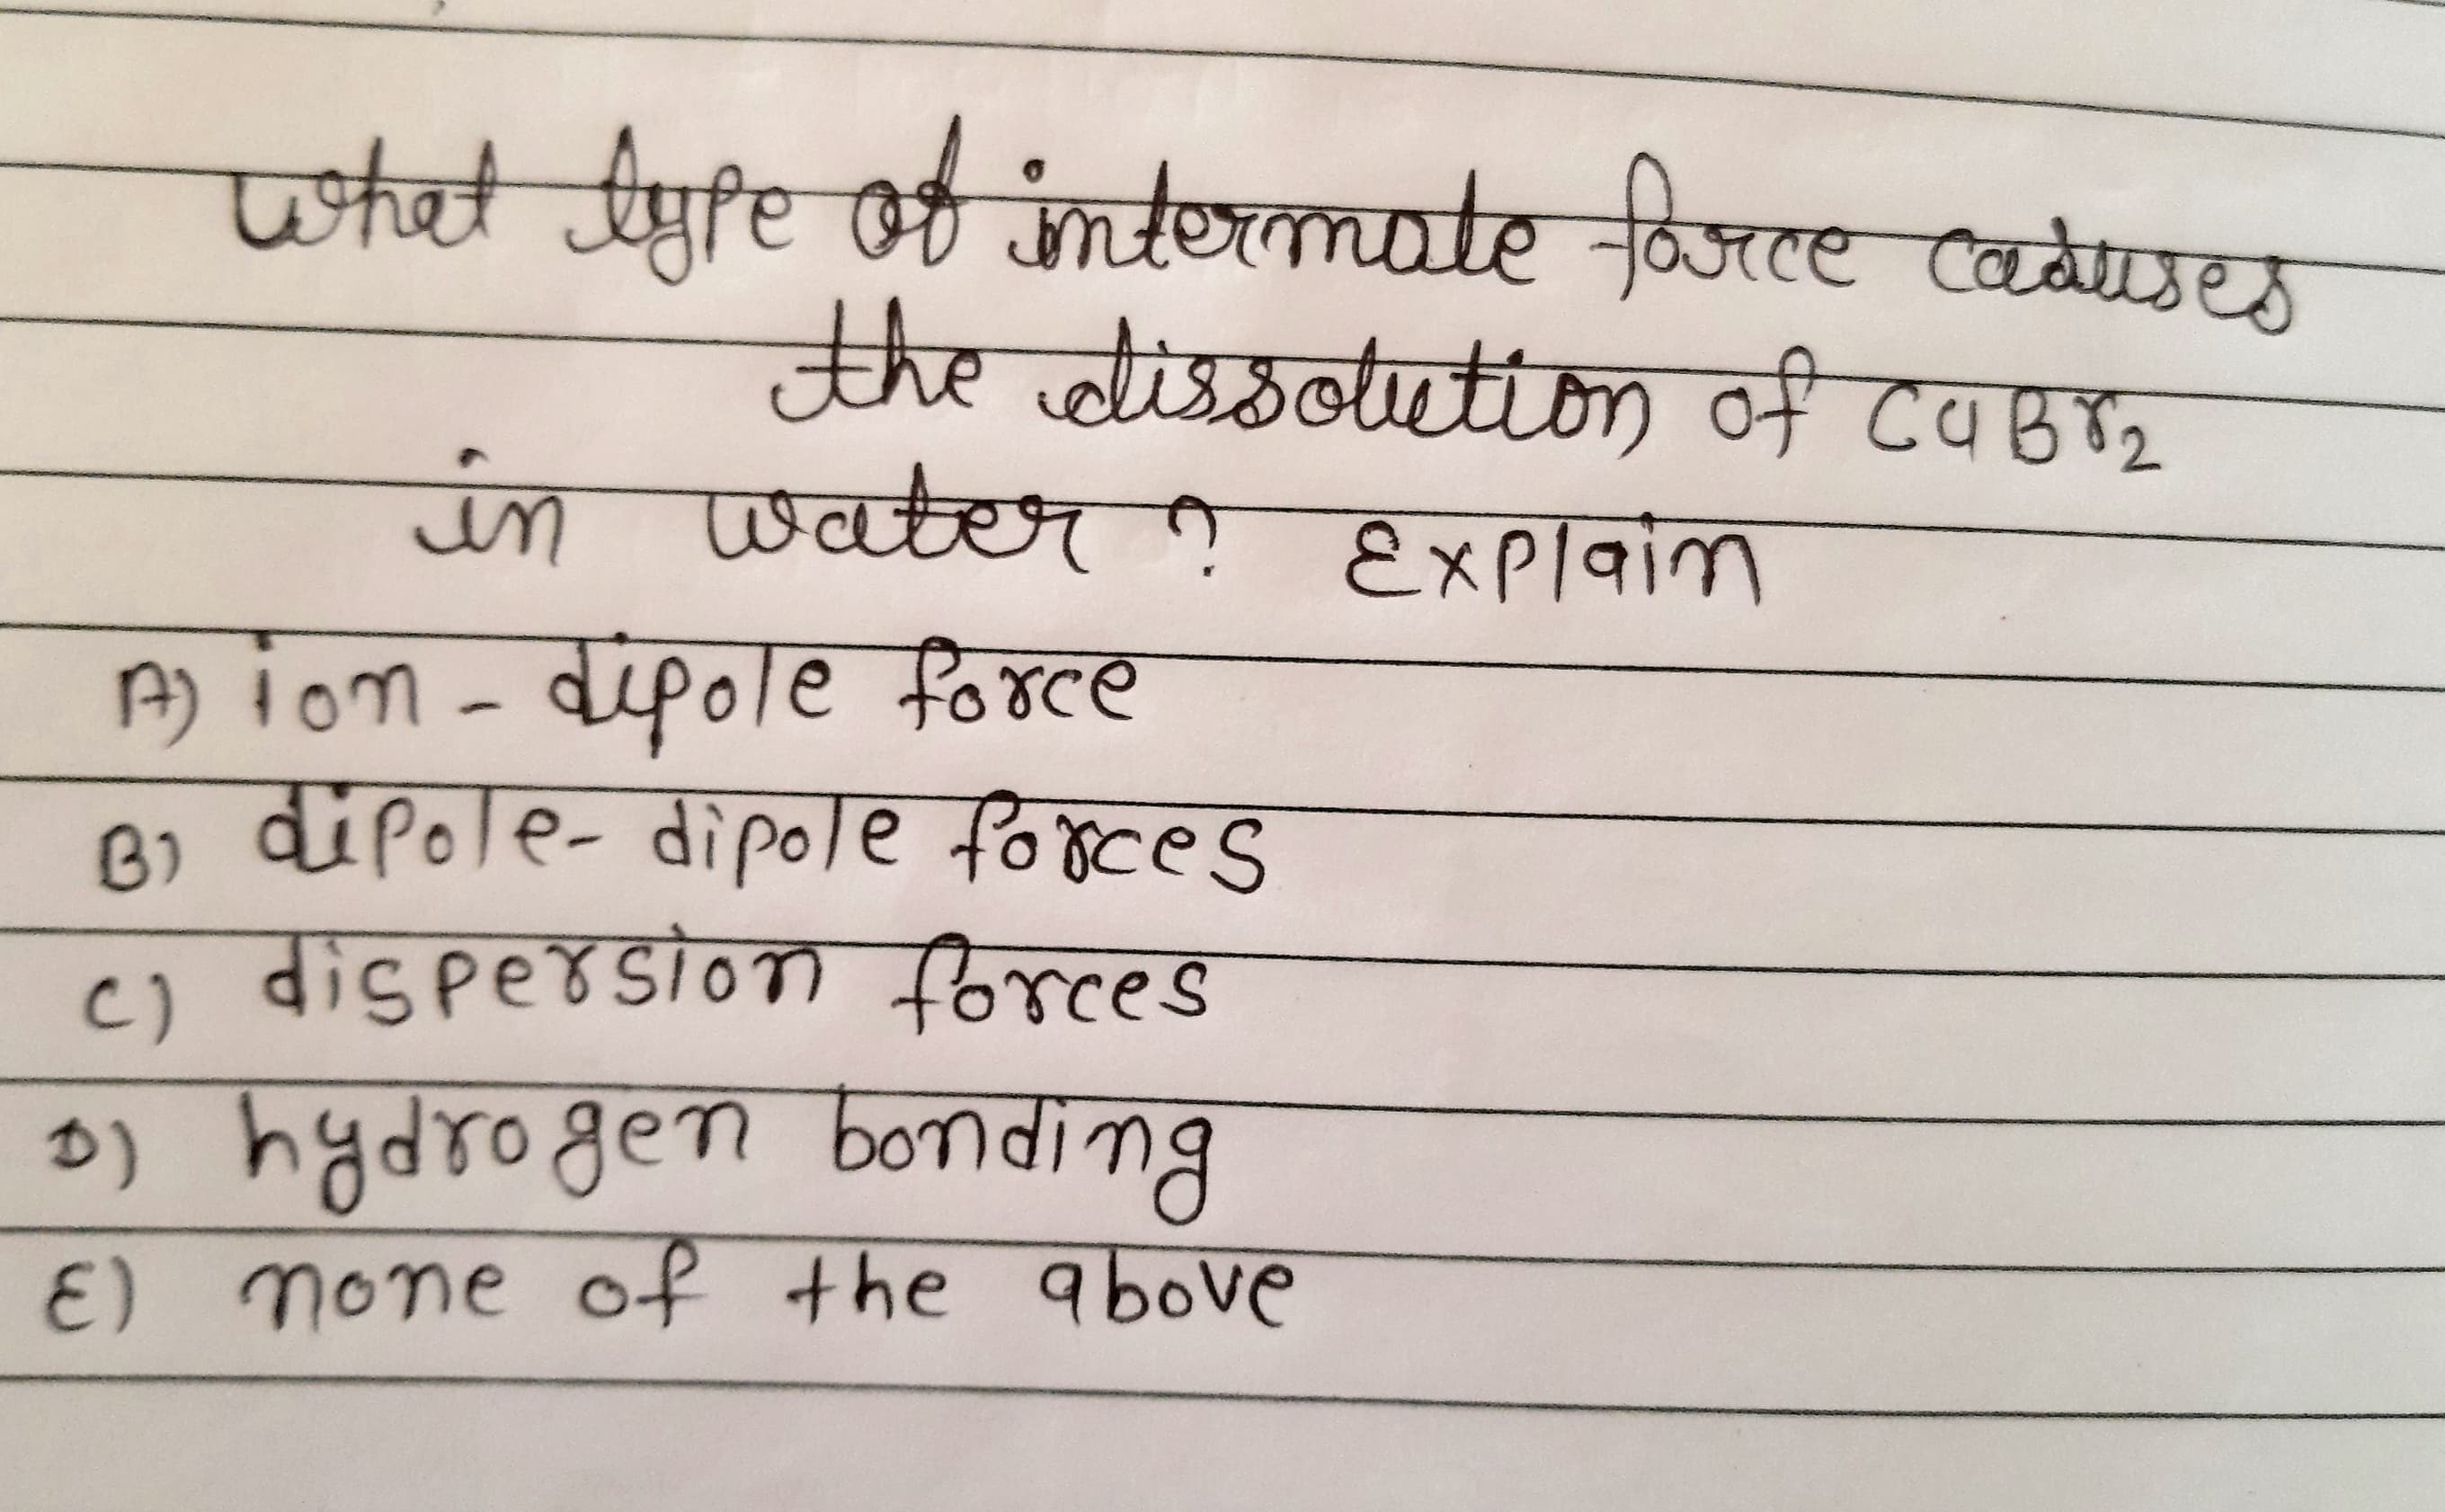 what type of intermole force causes
the dissolution of CaBr₂
in water ? Explain
A) ion - dipole force
B) dipole - dipole forces
C) dispersion forces
D) hydrogen bonding
E) none of the above